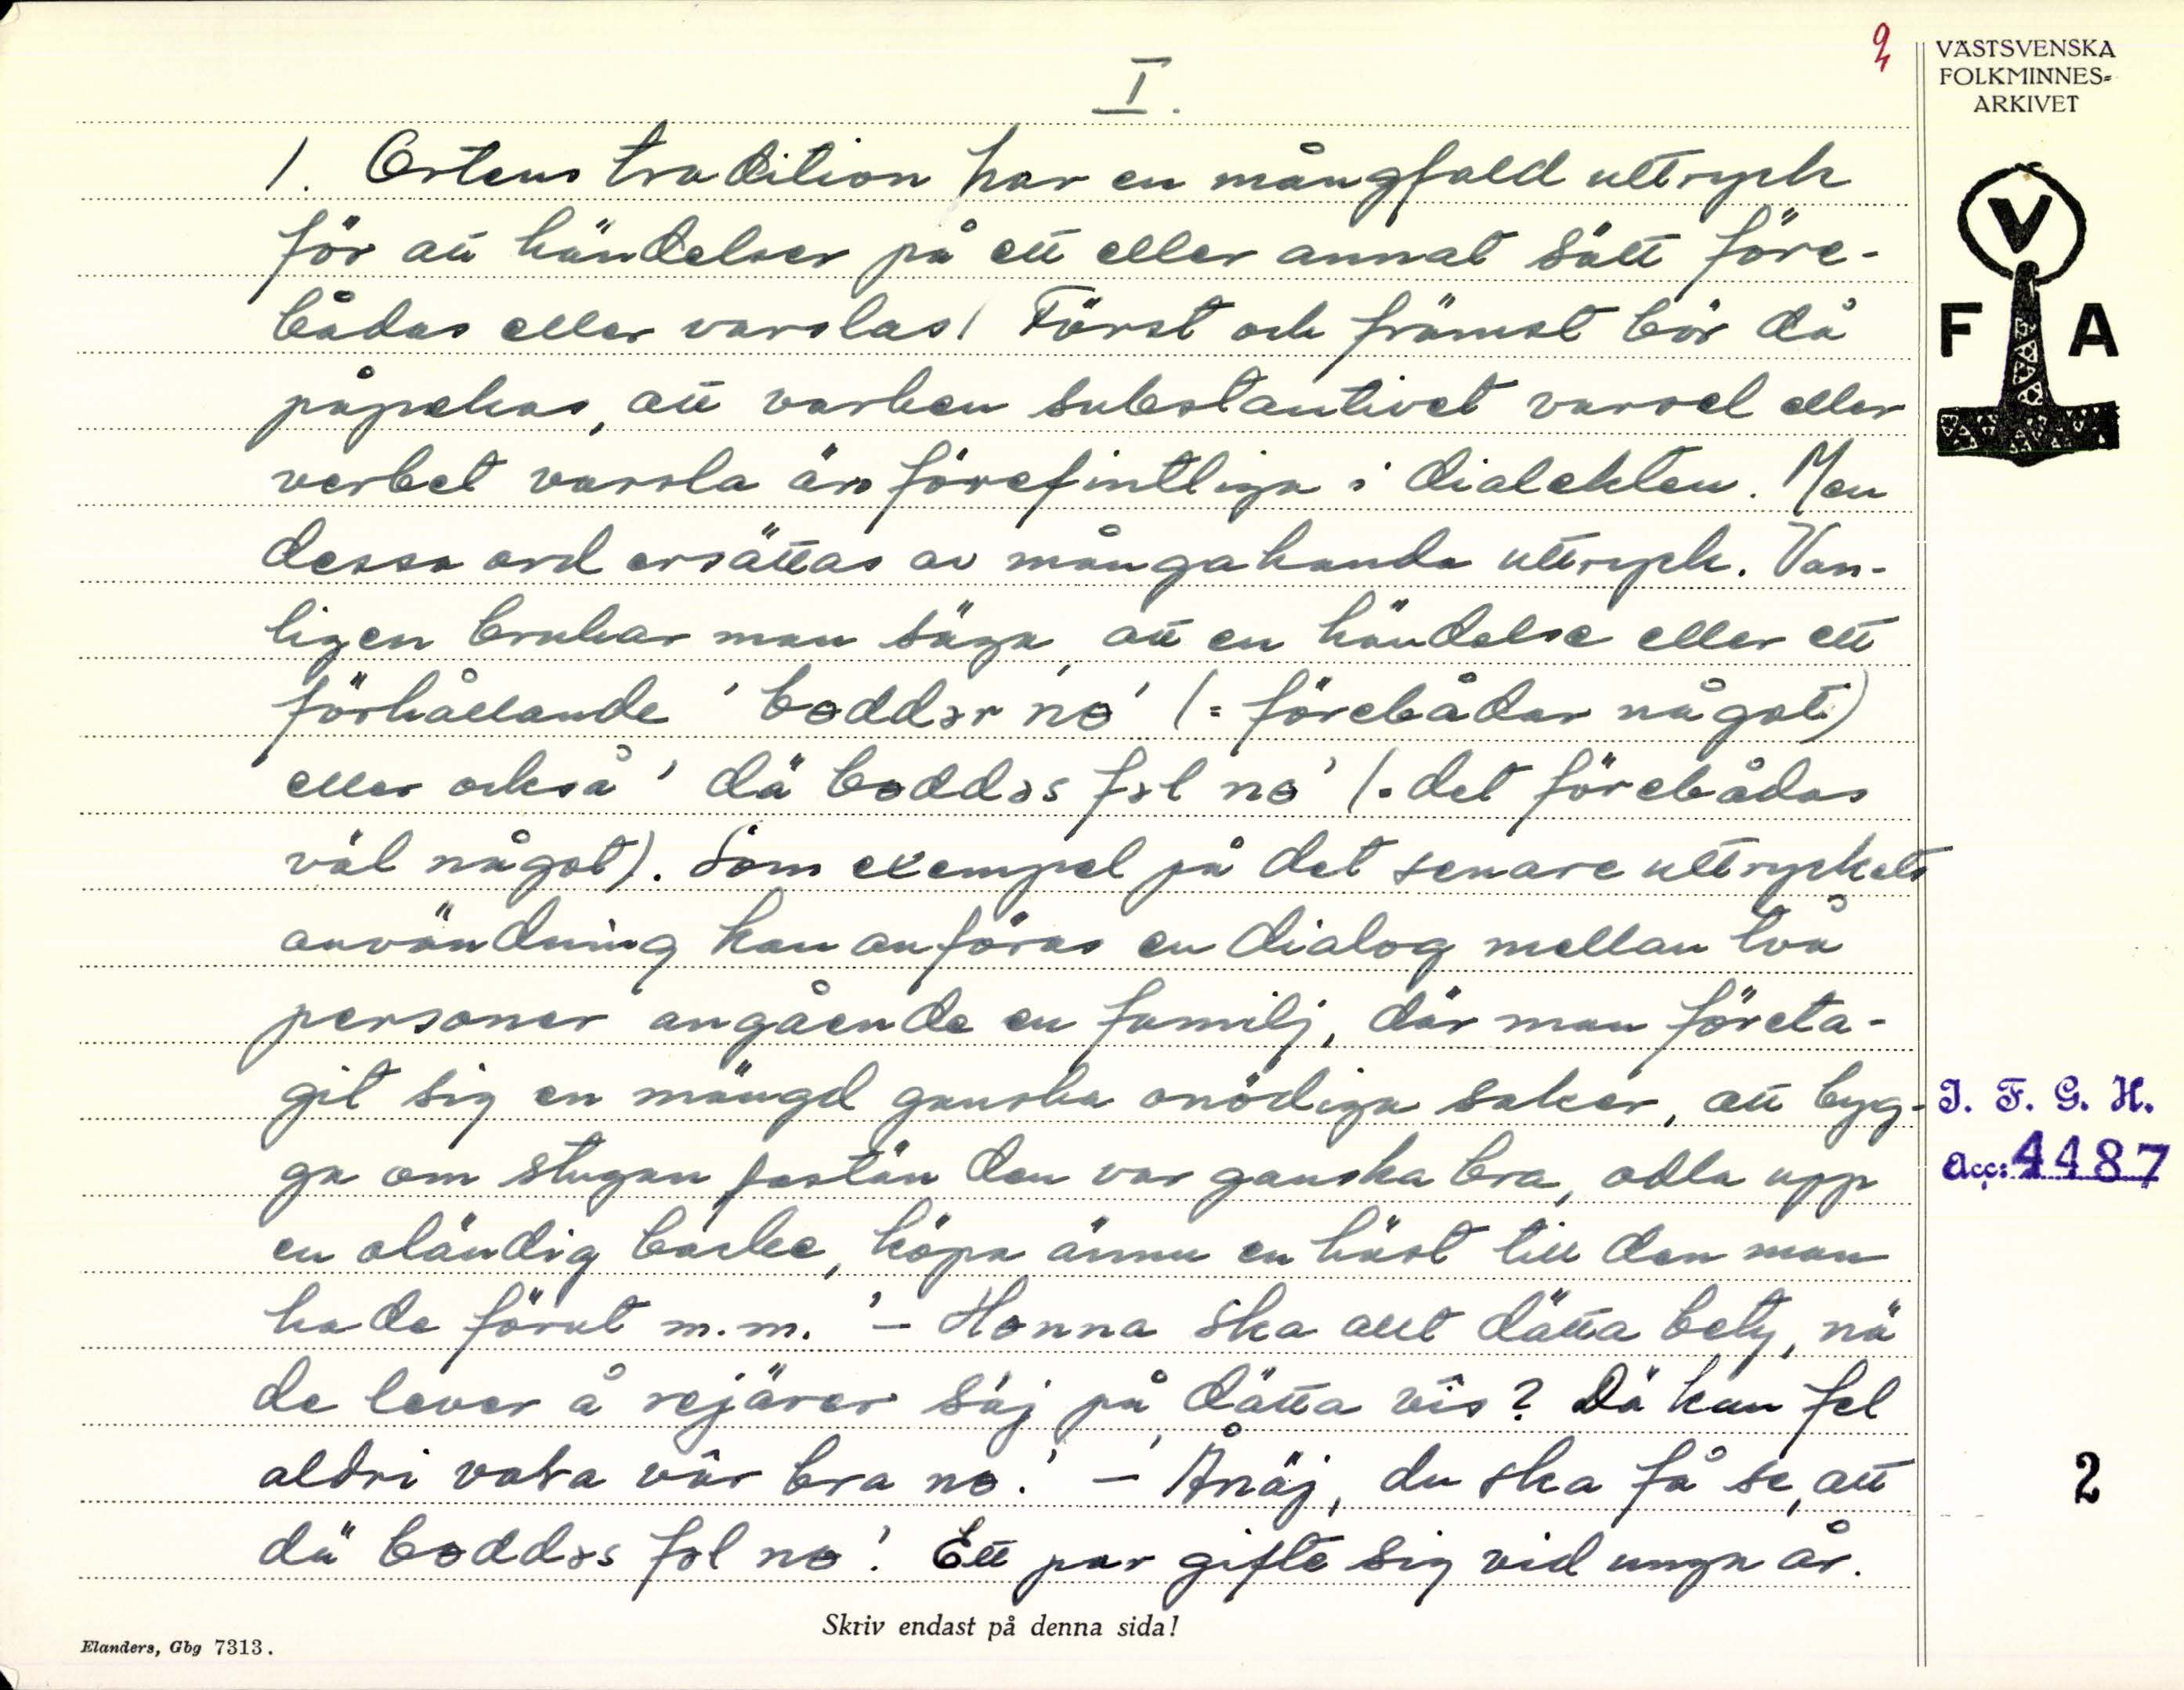 2
VÄSTSVENSKA
FOLKMINNES=
ARKIVET
V
F A
I.
1. Ortens tradition har en mångfald uttryck
för att händelser på ett eller annat sätt före-
bådas eller varslas. Först och främst bör då
påpekas, att varken substantivet varsel eller
verbet varsla äro förefintliga i dialekten. Men
dessa ord ersättas av mångahanda uttryck. Van-
ligen brukar man säga, att en händelse eller ett
förhållande 'bɵddər nɵ' (= förebådar något)
eller också 'dä bɵddəs fəl nɵ' (= det förebådas
väl något). Som exempel på det senare uttryckets
användning kan anföras en dialog mellan två
personer angående en familj, där man företa-
git sig en mängd ganska onödiga saker, att byg-
ga om stugan fastän den var ganska bra, odla upp
en oländig backe, köpa ännu en häst till den man
hade förut m.m. '– Hɵnna ska allt dätta bety, nä
de lever å rejärer säj på dätta vis? Dä kan fel
aldri vara vär bra nɵ.' – 'Ånäj, du ska få se, att
dä bɵddəs fəl nɵ'. Ett par gifte sig vid unga år.
I. F. G. H.
Acc: 4487
2
Skriv endast på denna sida!
Elanders, Gbg 7313.